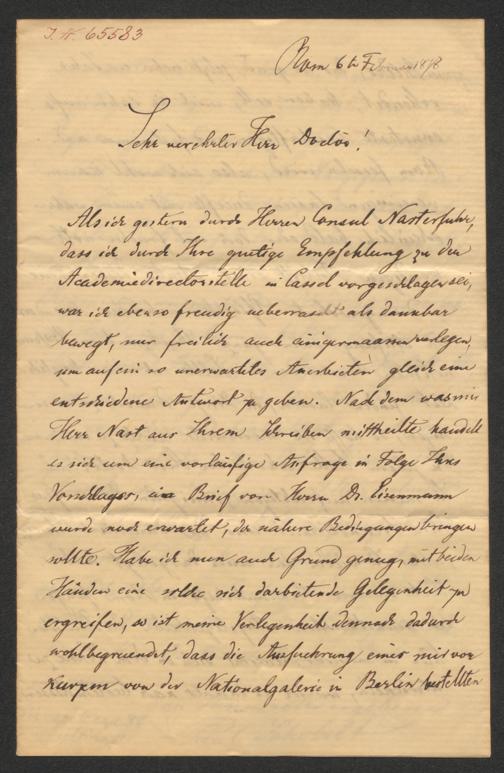 I. N. 65583
Rom 6ten Februar 1878
Sehr verehrter Herr Doctor!
Als ich gestern durch Herren Consul Nast erfuhr,
dass ich durch Ihre guetige Empfehlung zu der
Academiedirectorstelle in Cassel vorgeschlagen sei,
war ich ebenso freudig ueberrascht als dankbar
bewegt, nur freilich auch einigermaassen verlegen,
um auf ein so unerwartetes Anerbieten gleich eine
entschiedene Antwort zu geben. Nach dem was mir
Herr Nast aus Ihrem Schreiben mittheilte handelt
es sich um eine vorläufige Anfrage in Folge Ihres
Vorschlages, ein Brief von Herrn Dr. Eisenmann
wurde noch erwartet, der nähere Bedingungen bringen
sollte. Habe ich nun auch Grund genug, mit beiden
Händen eine solche sich darbietende Gelegenheit zu
ergreifen, so ist meine Verlegenheit dennoch dadurch
wohlbegruendet, dass die Ausfuehrung eines mir vor
kurzem von der Nationalgalerie in Berlin bestellten